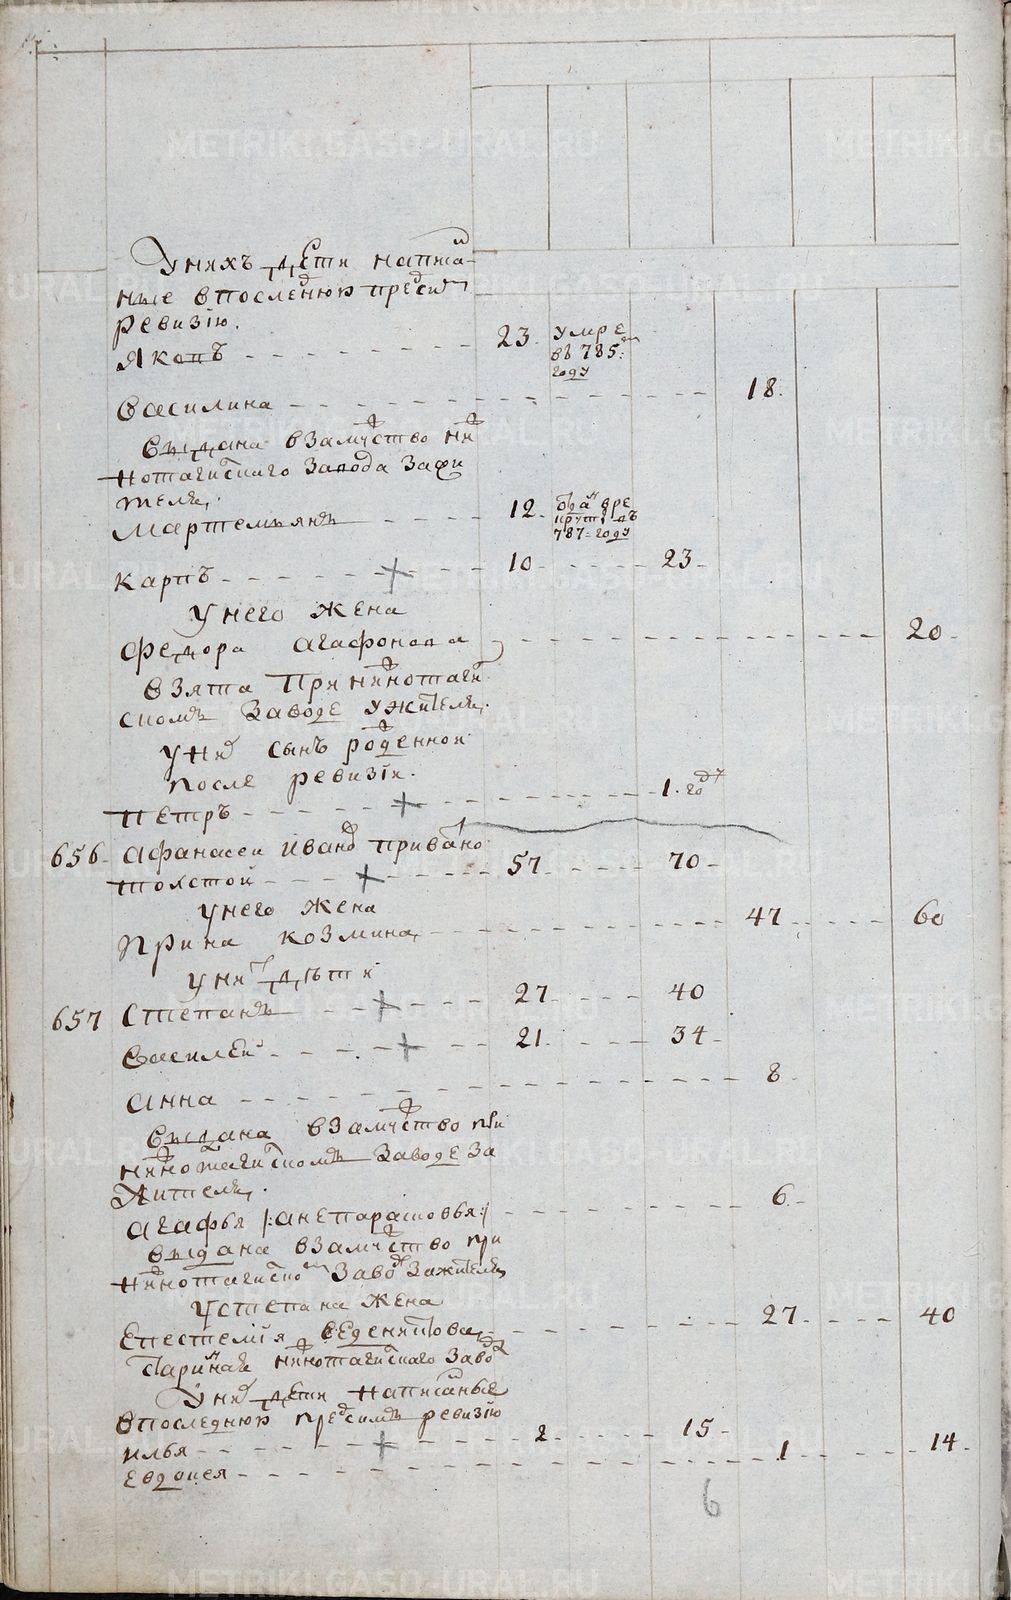 У них дети написан
ные в последнюю пред сим
ревизию.
Яков 23 умре
в 785м
году
Василина 18
Выдана в замужство ниж
нотагилскаго завода за жи
теля.
Мартемьян 12 отдан в ре
круты въ
787 году
Карпъ 10 23
У него жена
Федора Агафонова 20
взята при нижнотагил
ском заводе у жителя.
У них сынъ рожденной
после ревизiи.
Петръ 1 год
656 Афанасей Иванов
Толстой 57 70
У него жена
Ирина Козмина 47 60
у них дѣти
657 Степанъ 27 40
Василей 21 34
Анна 8
Выдана в замужство при
нижнотагилском заводе за
жителя.
Агафья /: она Парасковья :/ 6
выдана в замужство при
нижнотагилском заводе за жителя
У Степана жена
Епестемiя 27 40
старинная нижнотагилскаго завода
У них дети написанные
в последнюю пред сим ревизiю
Илья 2 15
Евдокея 1 14
6
METRIKI.GASO-URAL.RU